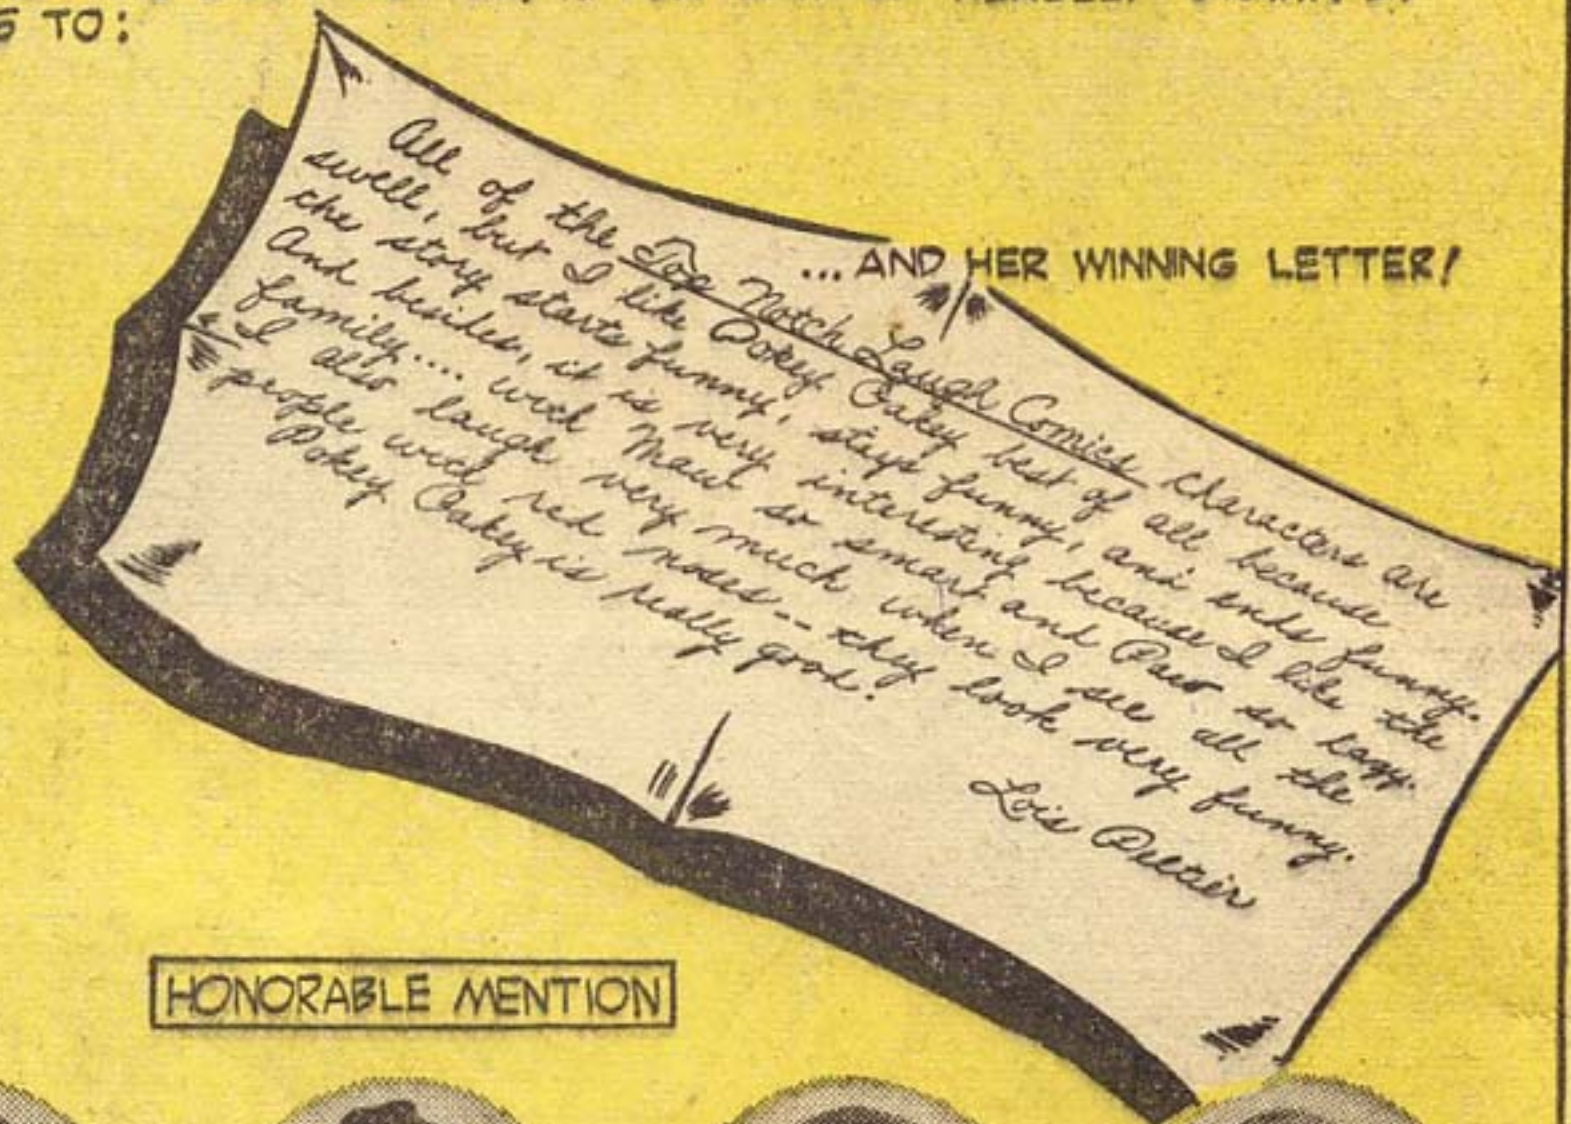 S TO:
...AND HER WINNING LETTER!
All of the Top Notch Laugh Comics characters are
swell, but I like Pokey Oakey best of all because
the story starts funny, stays funny, and ends funny.
And besides, it is very interesting because I like the
family.... with Maw so smart and Paw so lazy.
I also laugh very much when I see all the
people with red noses -- they look very funny.
Pokey Oakey is really good!
Lois Peltier
HONORABLE MENTION